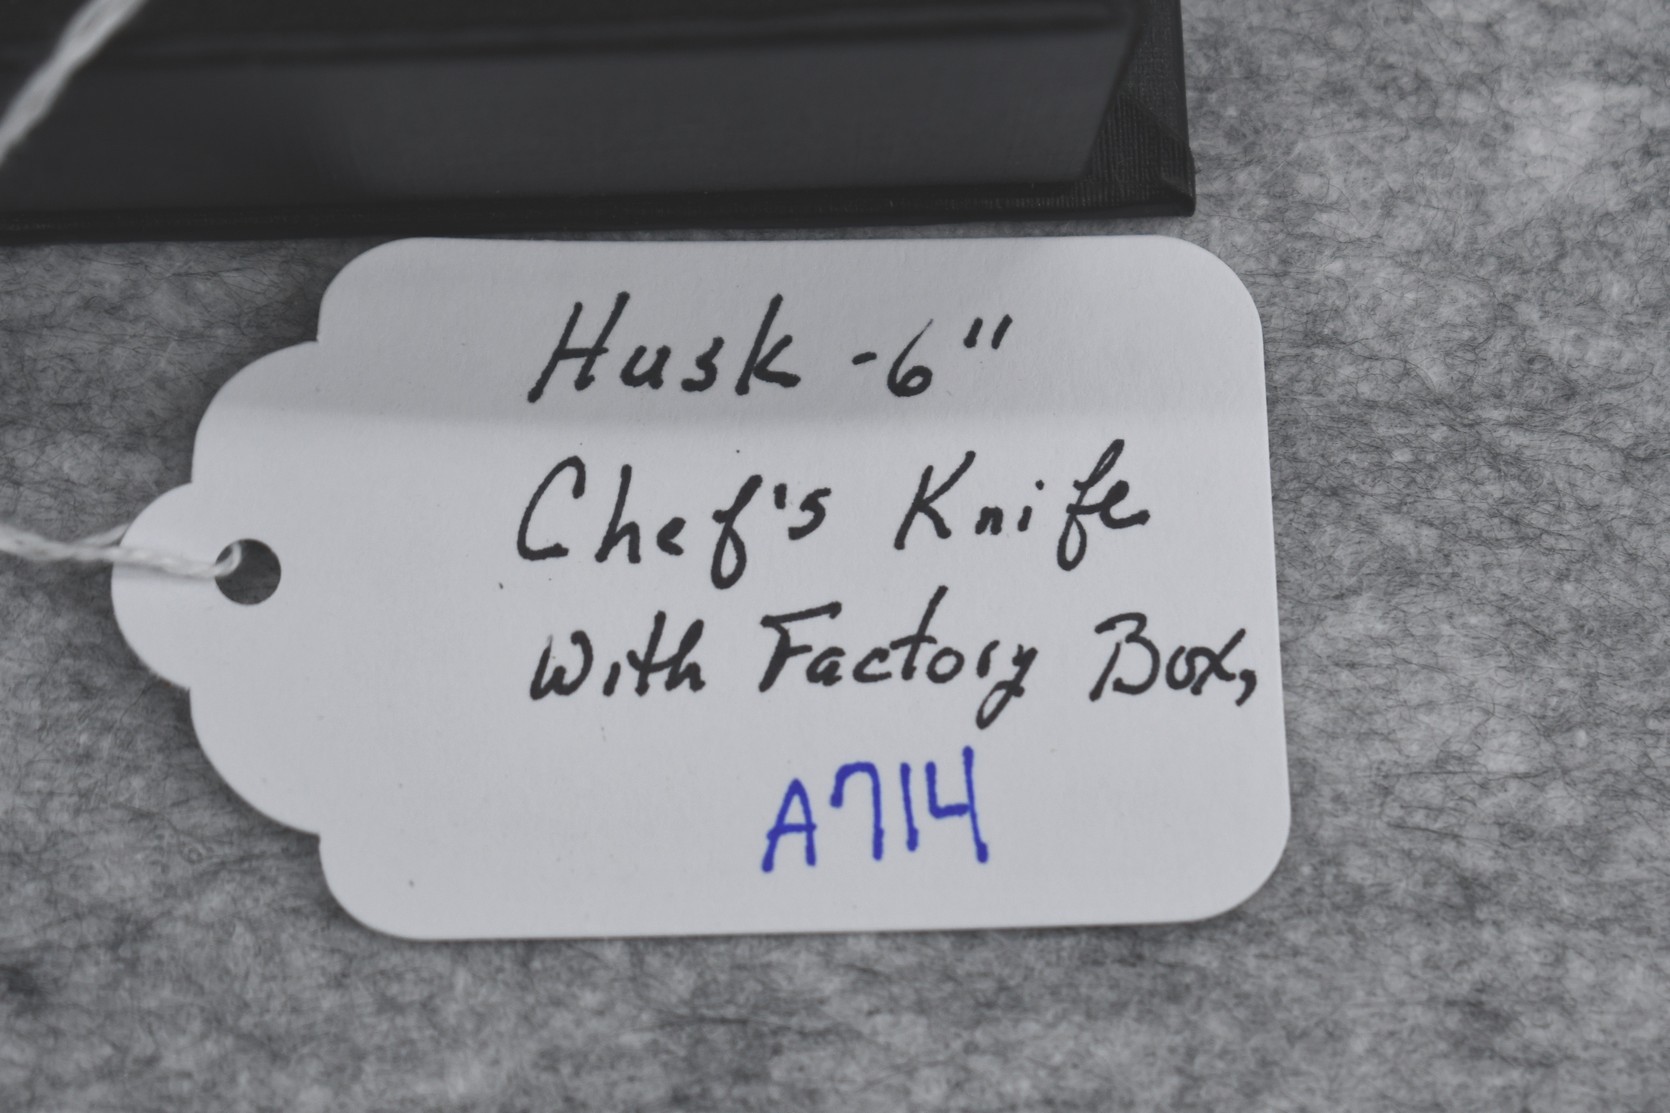 Husk - 6"
Chef's Knife
With Factory Box,
A714